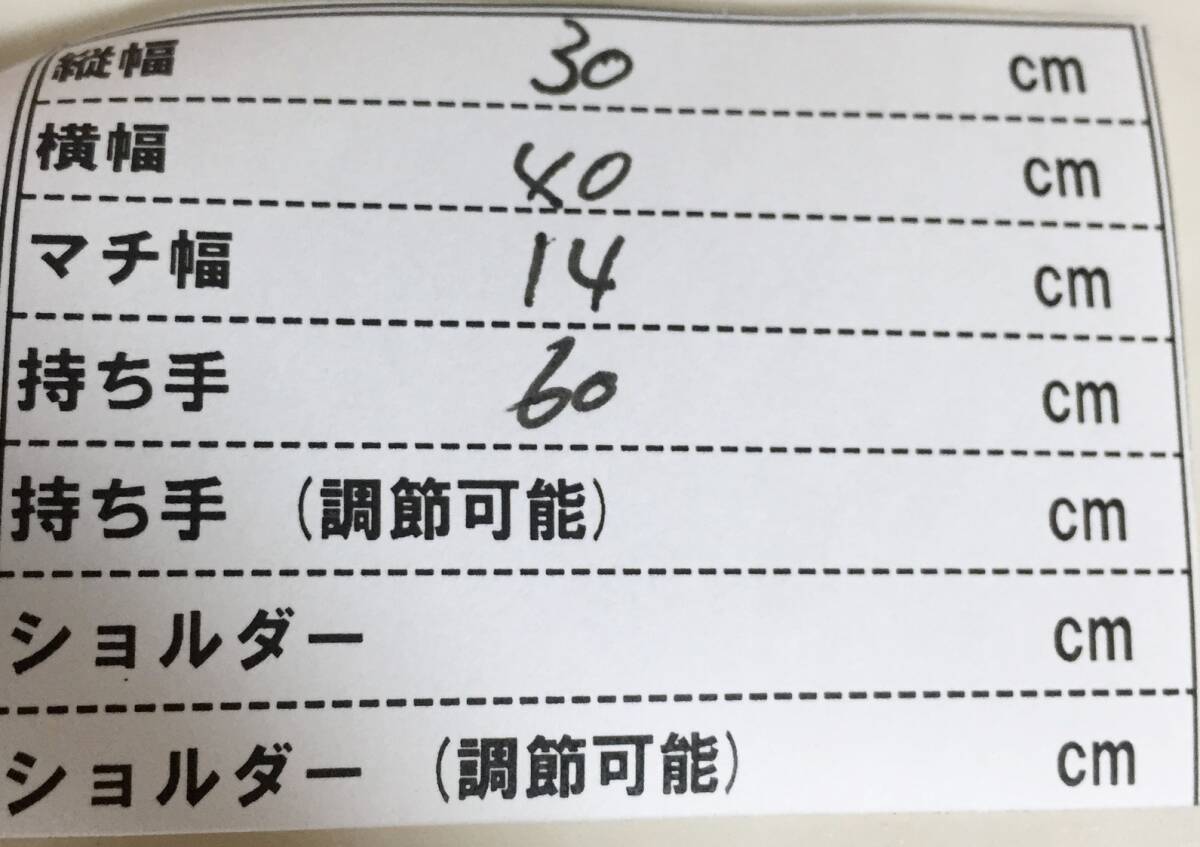 縦幅 30 cm
横幅 40 cm
マチ幅 14 cm
持ち手 60 cm
持ち手 (調節可能) cm
ショルダー cm
ショルダー (調節可能) cm